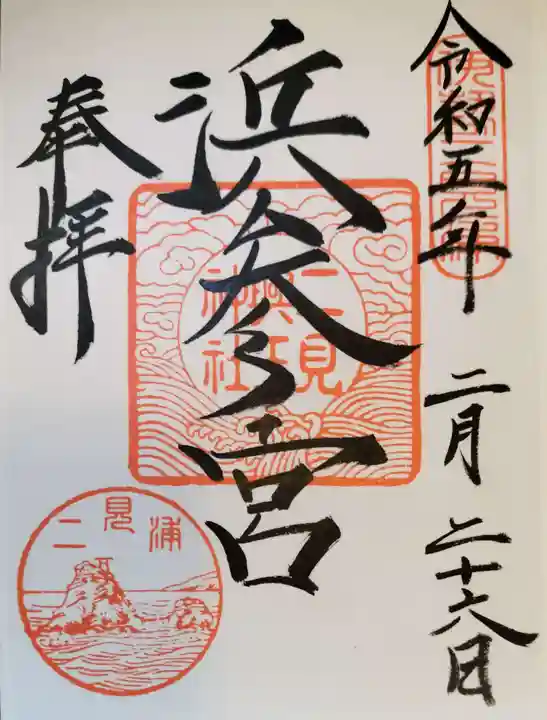 令和五年 二月二十六日
浜参宮
二見興玉神社
奉拝
二見浦